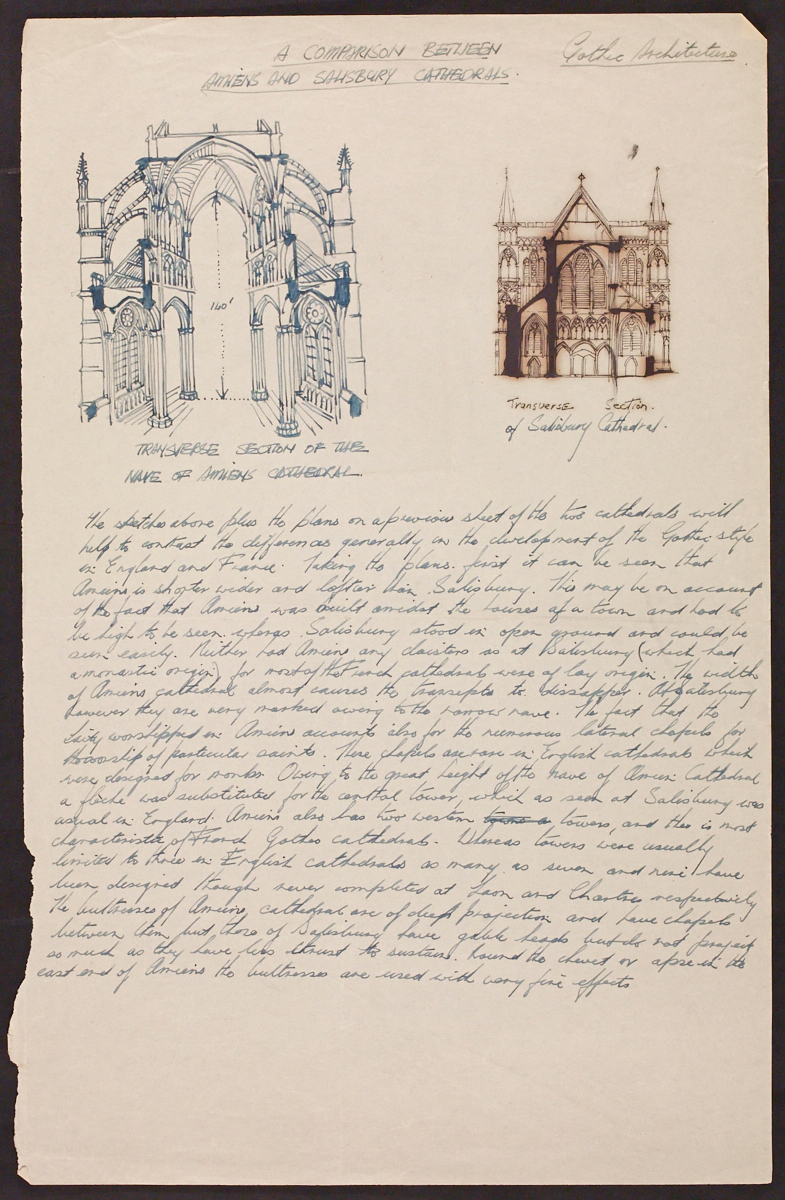 A COMPARISON BETWEEN
AMIENS AND SALISBURY CATHEDRALS.
Gothic Architecture
140'
TRANSVERSE SECTION OF THE
NAVE OF AMIENS CATHEDRAL.
Transverse Section.
of Salisbury Cathedral.
The sketches above plus the plans on a previous sheet of the two cathedrals will
help to contrast the differences generally in the development of the Gothic style
in England and France. Taking the plans first it can be seen that
Amiens is shorter wider and loftier than Salisbury. This may be on account
of the fact that Amiens was built amidst the houses of a town and had to
be high to be seen wheras Salisbury stood in open ground and could be
seen easily. Neither had Amiens any cloisters as at Salisbury (which had
a monastic origin) for most of the French cathedrals were of lay origin. The width
of Amiens cathedral almost causes the transepts to dissapper. At Salisbury
however they are very marked owing to the narrow nave. The fact that the
laity worshipped in Amiens accounts also for the numerous lateral chapels for
the worship of particular saints. These chapels are rare in English cathedrals which
were designed for monks. Owing to the great height of the nave of Amiens Cathedral
a flèche was substituted for the central tower, which as seen at Salisbury was
usual in England. Amiens also has two western towers, and this is most
characteristic of French Gothic cathedrals. Whereas towers were usually
limited to three in English cathedrals as many as seven and nine have
been designed though never completed at Laon and Chartres respectively
The buttresses of Amiens cathedral are of deep projection and have chapels
between them but those of Salisbury have gable heads but do not project
so much as they have less thrust to sustain. Round the chevet or apse in the
east end of Amiens the buttresses are used with very fine effects